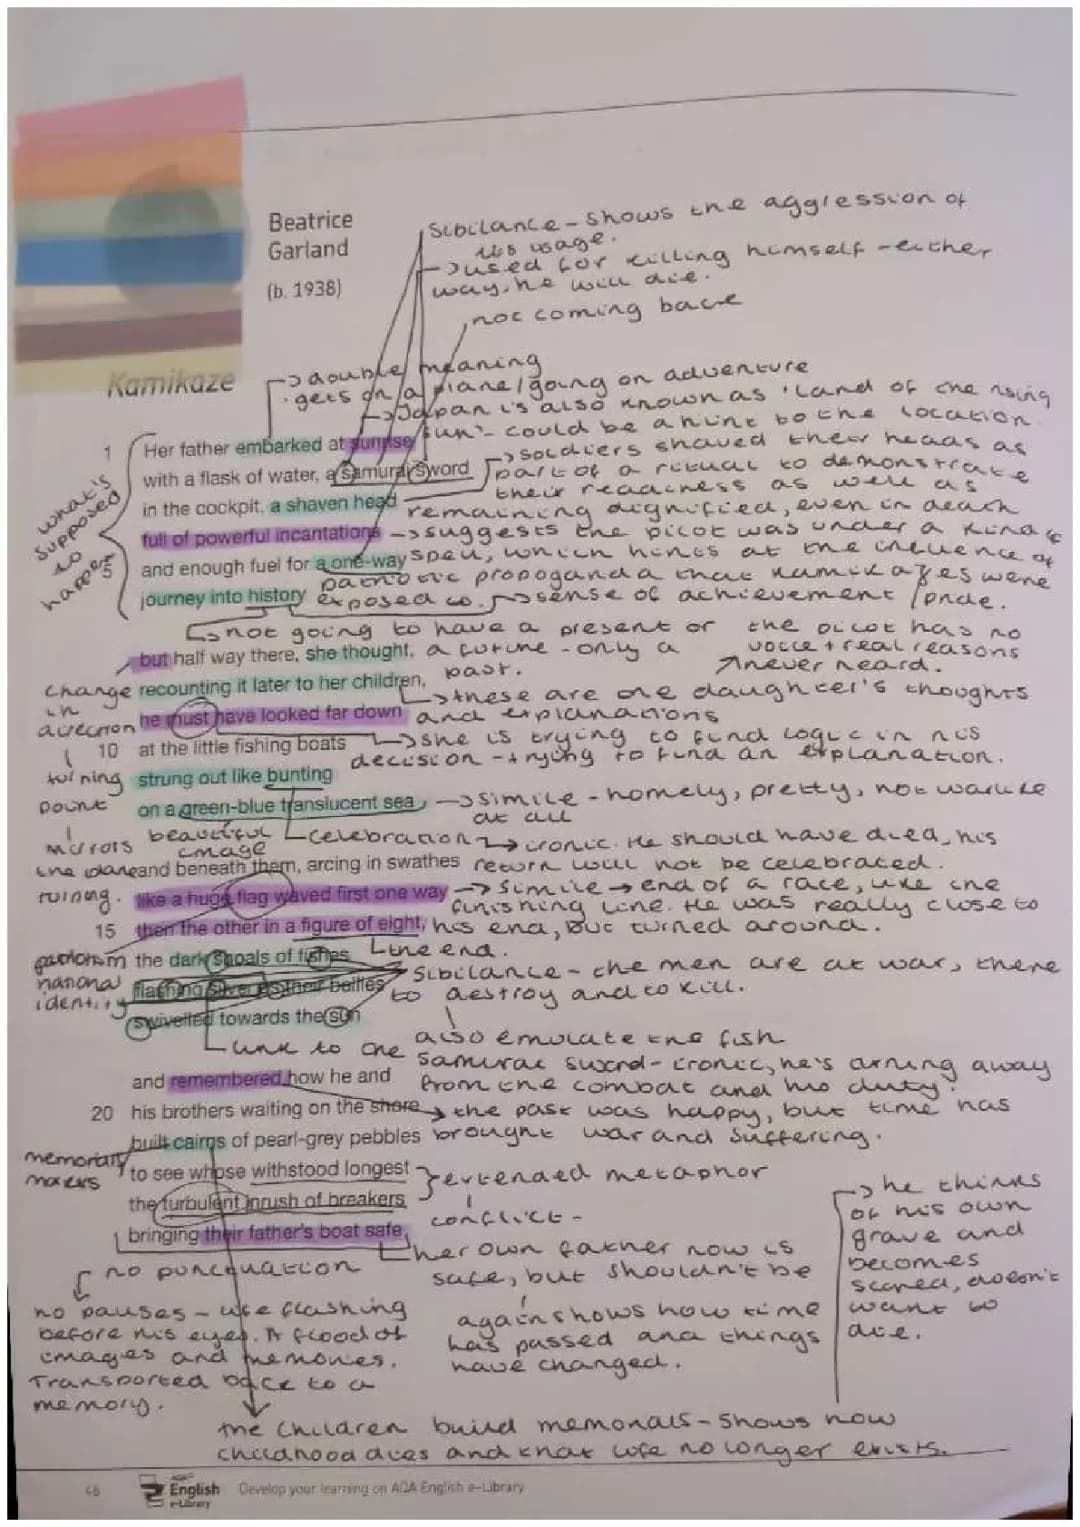 Beatrice
Garland
(b. 1938)
Sibilance - shows the aggression of
its usage.
→ used for killing himself - either
way, he will die.
not coming back
Kamikaze
→ double meaning
· gets on a plane / going on adventure
→ Japan is also known as 'Land of the rising
sun' - could be a hint to the location
1 Her father embarked at sunrise
with a flask of water, a samurai sword
in the cockpit, a shaven head
full of powerful incantations
5 and enough fuel for a one-way
journey into history
what's
supposed
to
happen
→ soldiers shaved their heads as
part of a ritual to demonstrate
their readiness as well as
remaining dignified, even in death
→ suggests the pilot was under a kind of
spell, which hints at the influence of
patriotic propoganda that kamikazes were
exposed to.
→ sense of achievement / pride.
→ not going to have a present or
a future - only a
past.
the pilot has no
voice + real reasons
never heard.
but half way there, she thought,
recounting it later to her children,
he must have looked far down
10 at the little fishing boats
strung out like bunting
on a green-blue translucent sea
change
in
direction
turning
point
mirrors
the plane
turning.
→ these are the daughter's thoughts
and explanations
→ she is trying to find logic in his
decision - trying to find an explanation.
→ simile - homely, pretty, not warlike
at all
beautiful
image
celebration → ironic. He should have died, his
return will not be celebrated.
and beneath them, arcing in swathes
like a huge flag waved first one way
15 then the other in a figure of eight,
the dark shoals of fishes
flashing silver as their bellies
swivelled towards the sun
→ simile → end of a race, like the
finishing line. He was really close to
his end, but turned around.
the end.
patriotism
national
identity
→ Sibilance - the men are at war, there
to destroy and to kill.
also emulate the fish
Link to the
samurai sword - ironic, he's turning away
from the combat and his duty.
and remembered how he and
20 his brothers waiting on the shore
built cairns of pearl-grey pebbles
to see whose withstood longest
the turbulent inrush of breakers
bringing their father's boat safe,
→ the past was happy, but time has
brought war and suffering.
memorial
makers
extended metaphor
conflict -
her own father now is
safe, but shouldn't be
again shows how time
has passed and things
have changed.
→ he thinks
of his own
grave and
becomes
scared, doesn't
want to
die.
no punctuation
no pauses - life flashing
before his eyes. A flood of
images and memories.
Transported back to a
memory.
the children build memorials - shows how
childhood dies and that life no longer exists.
46 AQA English e-Library Develop your learning on AQA English e-Library